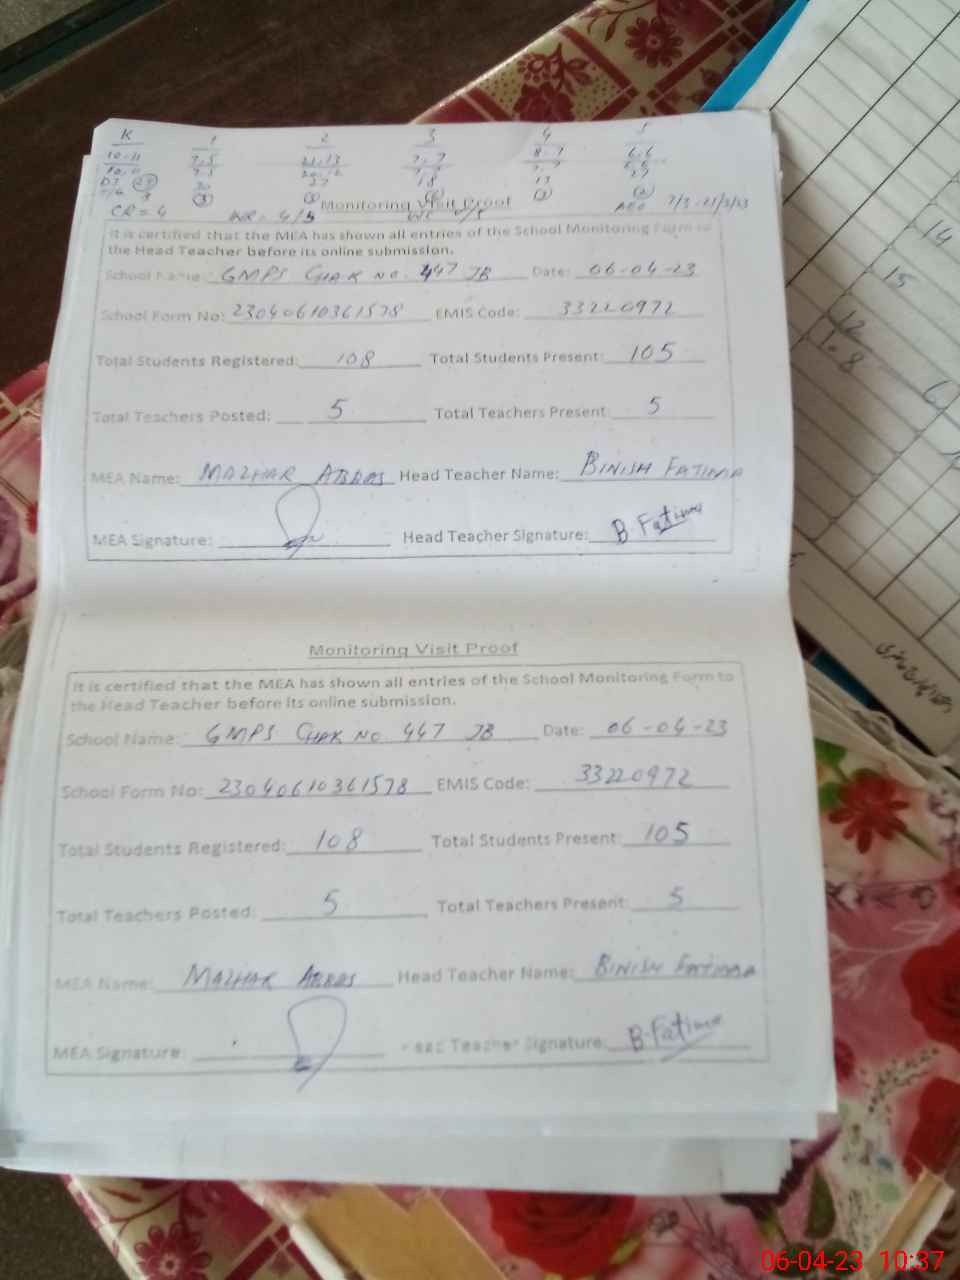 K 1 2 3 4 5
10-11 7,5 21,13 7,7 8-7 6,6
27 18 13 27
CR = 4 4/5 AEO 7/3-21/3/23
Monitoring Visit Proof
It is certified that the MEA has shown all entries of the School Monitoring Form to
the Head Teacher before its online submission.
School Name: GMPS CHAK NO. 447 JB Date: 06-04-23
School Form No: 23040610361578 EMIS Code: 33220972
Total Students Registered: 108 Total Students Present: 105
Total Teachers Posted: 5 Total Teachers Present: 5
MEA Name: MAZHAR ABBAS Head Teacher Name: BINISH FATIMA
MEA Signature: Head Teacher Signature: B-Fatima
Monitoring Visit Proof
It is certified that the MEA has shown all entries of the School Monitoring Form to
the Head Teacher before its online submission.
School Name: GMPS CHAK NO 447 JB Date: 06-04-23
School Form No: 23040610361578 EMIS Code: 33220972
Total Students Registered: 108 Total Students Present: 105
Total Teachers Posted: 5 Total Teachers Present: 5
MEA Name: MAZHAR ABBAS Head Teacher Name: BINISH FATIMA
MEA Signature: Head Teacher Signature: B-Fatima
14
15
12
06-04-23 10:37